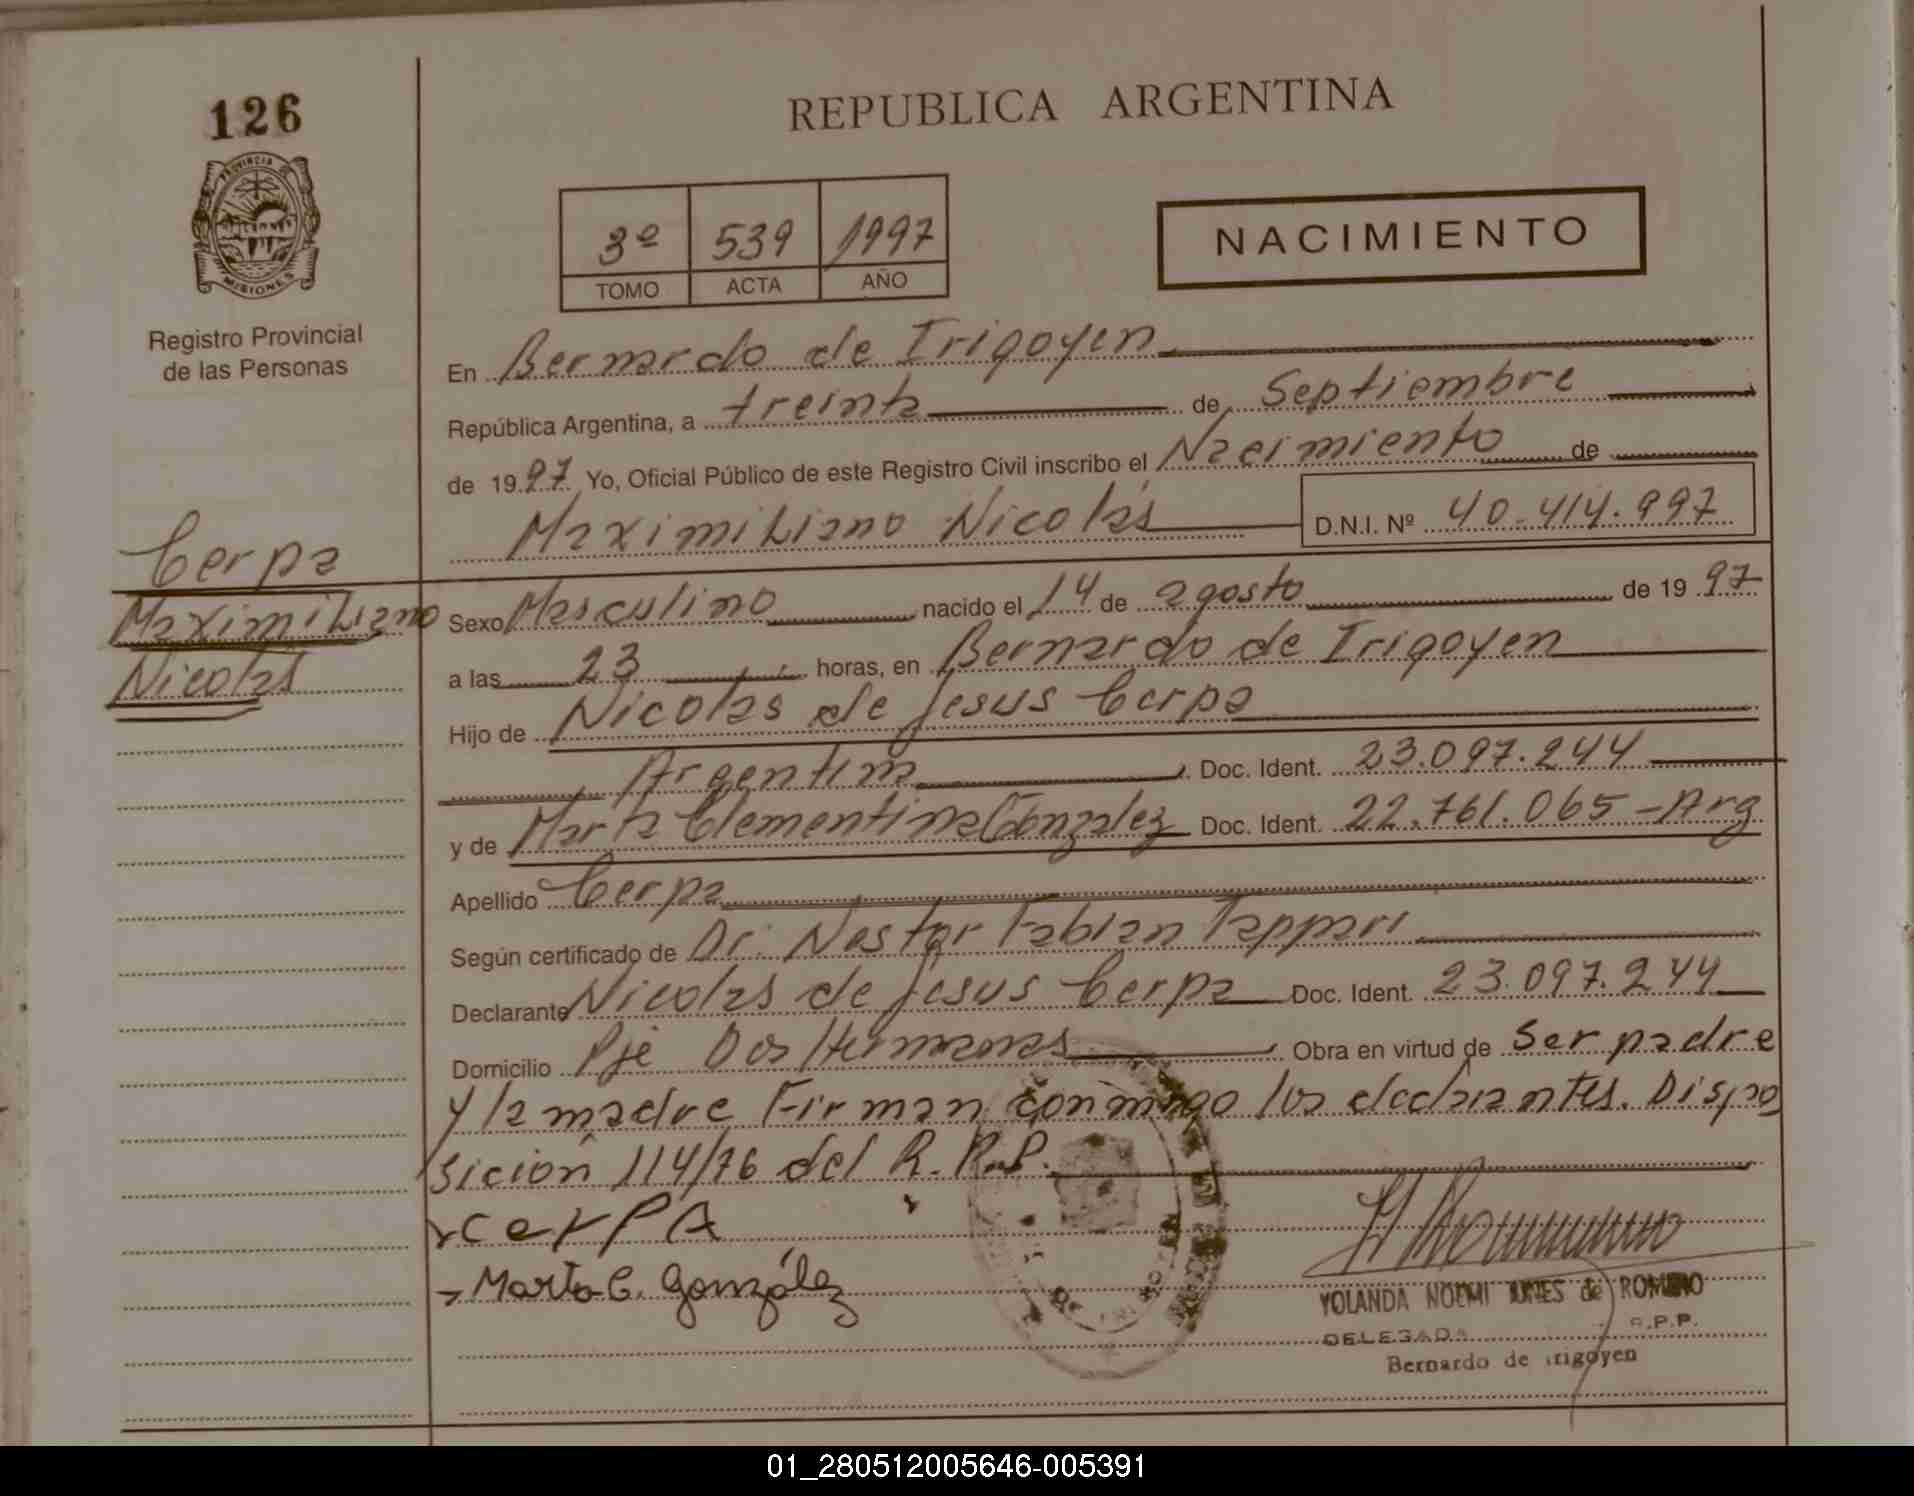 126
PROVINCIA
MISIONES
Registro Provincial
de las Personas
Cerpa
Maximiliano
Nicolás
REPUBLICA ARGENTINA
3º 539 1997
TOMO ACTA AÑO
NACIMIENTO
En Bernardo de Irigoyen
República Argentina, a treinta de Septiembre
de 1997 Yo, Oficial Público de este Registro Civil inscribo el Nacimiento de
Maximiliano Nicolás D.N.I. Nº 40.414.997
Sexo Masculino nacido el 14 de agosto de 1997
a las 23 horas, en Bernardo de Irigoyen
Hijo de Nicolas de Jesus Cerpa
Argentina Doc. Ident. 23.097.244
y de Marta Clementina González Doc. Ident. 22.761.065 - Arg
Apellido Cerpa
Según certificado de Dr. Nestor Fabian Tappari
Declarante Nicolas de Jesus Cerpa Doc. Ident. 23.097.244
Domicilio Pje Dos Hermanas Obra en virtud de Ser padre
y la madre Firman conmigo los declarantes. Dispo
sición 114/76 del R.P.P.
CerPA
Marta C. González
YOLANDA NOEMI de ROMERO
DELEGADA R.P.P.
Bernardo de Irigoyen
01_280512005646-005391